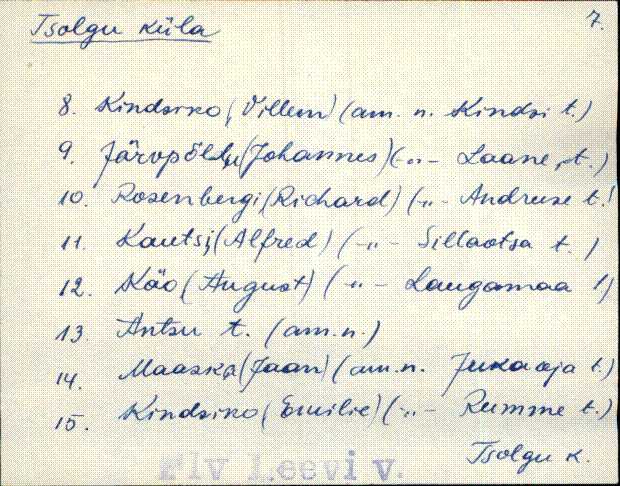 Tsolgu küla
7.
8. Kindsiko, (Villem) (am. n. Kindsi t.)
9. Järvpõldu, (Johannes) (-"- Laane, t.)
10. Rosenbergi, (Richard) (-"- Andruse t.)
11. Kautsi, (Alfred) (-"- Sillaotsa t.)
12. Käo, (August) (-"- Laugamaa t)
13. Antsu t. (am. n.)
14. Maaska, (Jaan) (am. n. Jukaoja t.)
15. Kindsiko (Emilie) (-"- Rumme t.)
Tsolgu k.
Plv Leevi v.